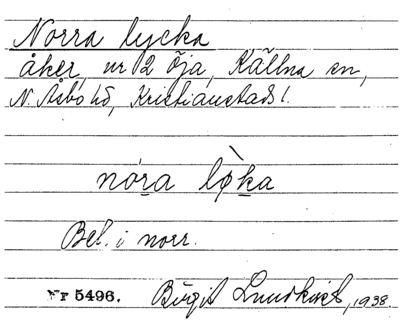 Norra lycka
åker, nr 2 Öja, Källna sn,
N. Åsbo hd, Kristianstads l.
nóra lø̀ka
Bel. i norr.
Nr 5496. Birgit Lundkvist, 1938